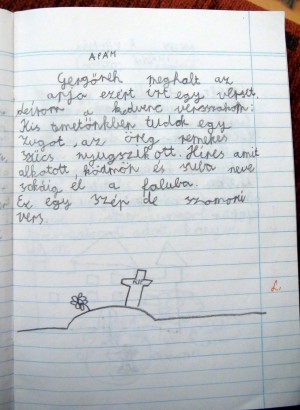 APÁM
Gergőnek meghalt az
apja ezért írt egy verset,
leírom a kedvenc versszakom:
Kis temetőnkben tudok egy
zugot, az öreg remekes
szűcs nyugszik ott. Híres amit
alkotott, ködmön és suba neve
sokáig él a faluba.
Ez egy szép de szomorú
vers.